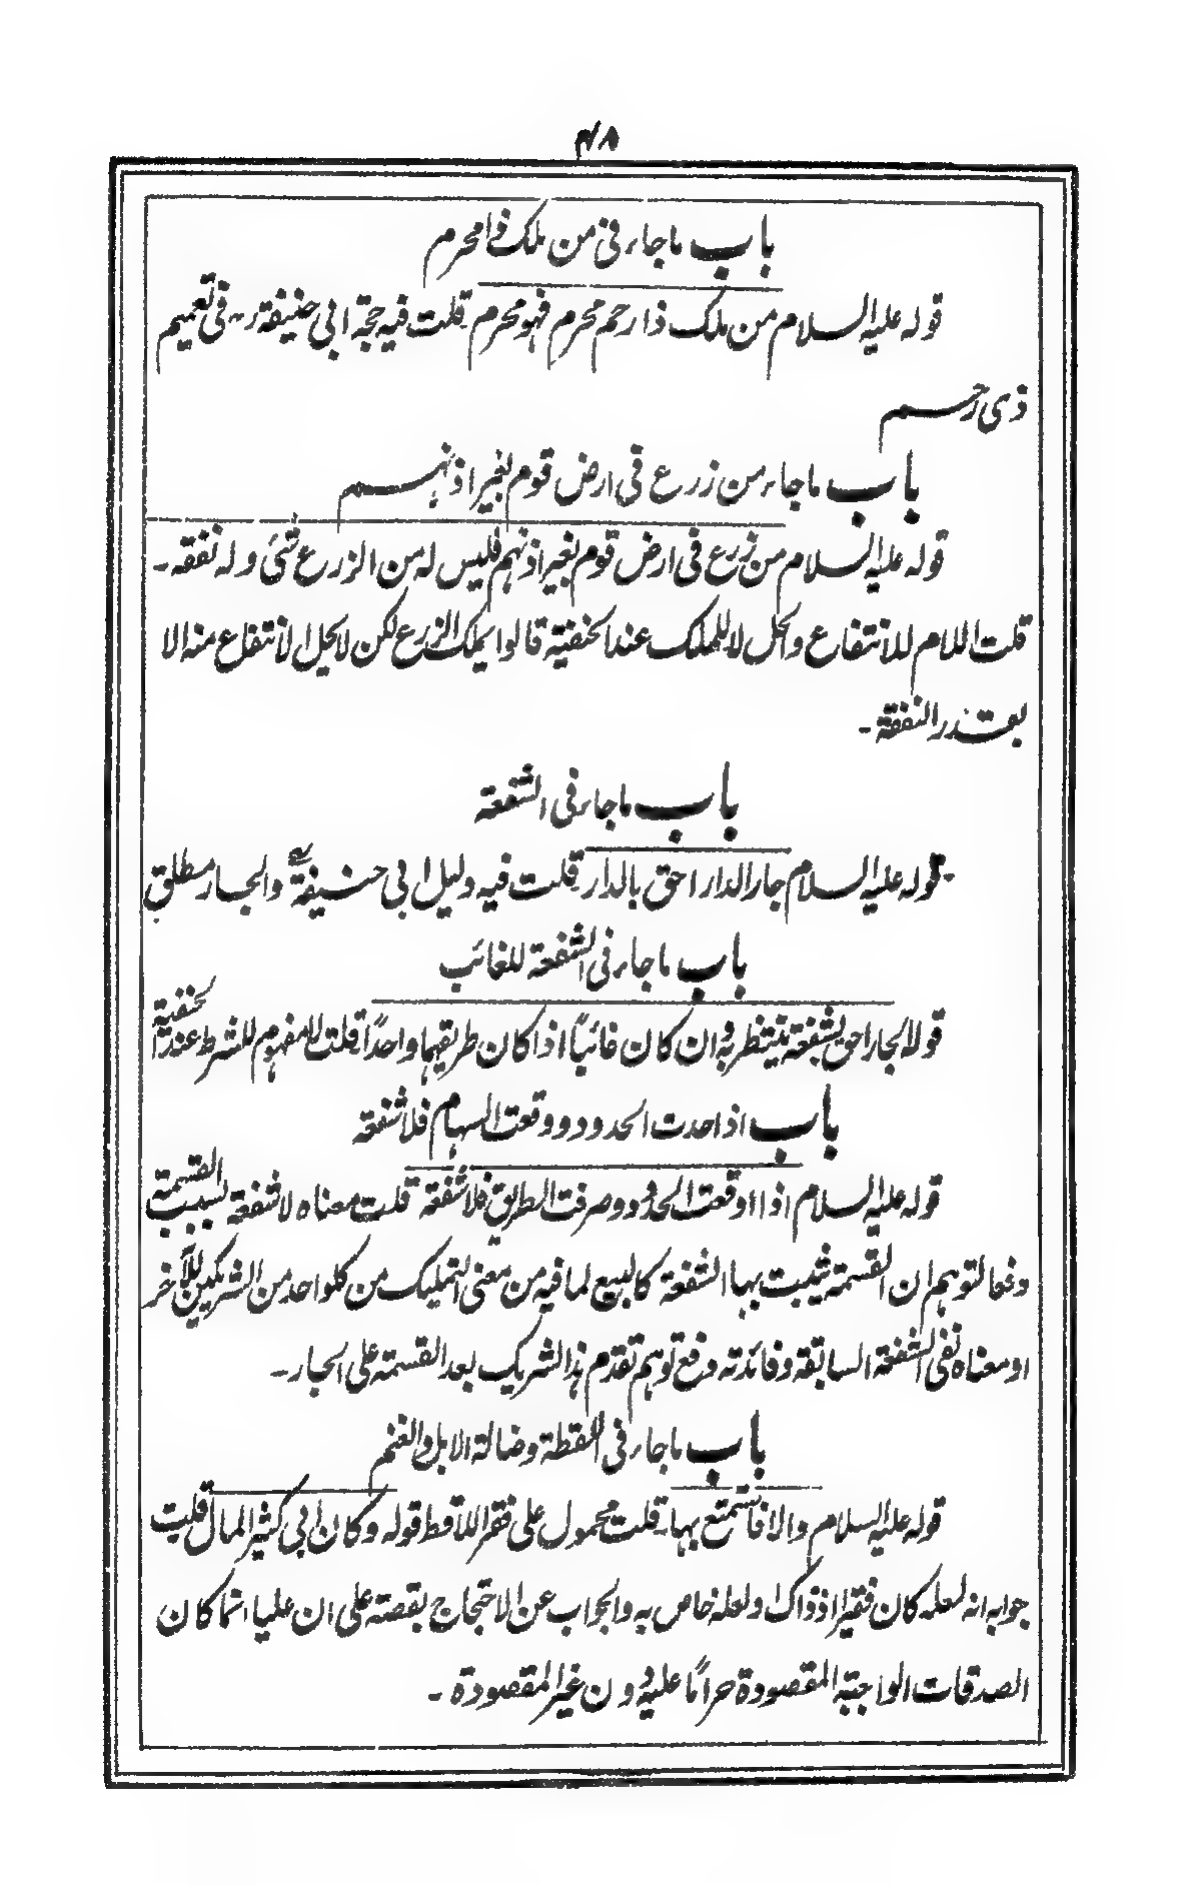 ۴۸
باب ماجاء فی من ملک ذا محرم
قوله علیه السلام من ملک ذا رحم محرم فهو محرم قلت فیه حجة ابی حنیفة رح فی تعمیم
ذی رحم
باب ماجاء من زرع فی ارض قوم بغیر اذنهم
قوله علیه السلام من زرع فی ارض قوم بغیر اذنهم فلیس له من الزرع شئ وله نفقه -
قلت اللام للانتفاع والحل لا للملک عند الحنفیة قالوا یملک الزرع لکن لا یحل الانتفاع منه الا
بقدر النفقة -
باب ماجاء فی الشفعة
قوله علیه السلام جار الدار احق بالدار قلت فیه دلیل ابی حنیفةؒ والجار مطلق
باب ماجاء فی الشفعة للغائب
قوله الجار احق بشفعة ینتظر به وان کان غائبًا اذا کان طریقهما واحدًا قلت لا مفهوم للشرط عند الحنفیة
باب اذا حدت الحدود ووقعت السهام فلا شفعة
قوله علیه السلام اذا اوقعت الحدود وصرفت الطریق فلا شفعة قلت معناه لا شفعة بسبب القسمة
دفعا لتوهم ان القسمة ثبت بها الشفعة کالبیع لما فیه من معنی التملیک من کلواحد من الشریکین للآخر
او معناه نفی الشفعة السابقة وفائدته دفع توهم تقدم هذا الشریک بعد القسمة علی الجار -
باب ماجاء فی اللقطة وضالة الابل والغنم
قوله علیه السلام والا فاستمتع بها قلت محمول علی فقر اللاقط قوله وکان ابی کثیر المال قلت
جوابه انه لعله کان فقیرا اذ ذاک او لعله خاص به والجواب عن الاحتجاج بقصة علی ان علیا انما کان
الصدقات الواجبة المقصودة حرامًا علیه دون غیر المقصودة -